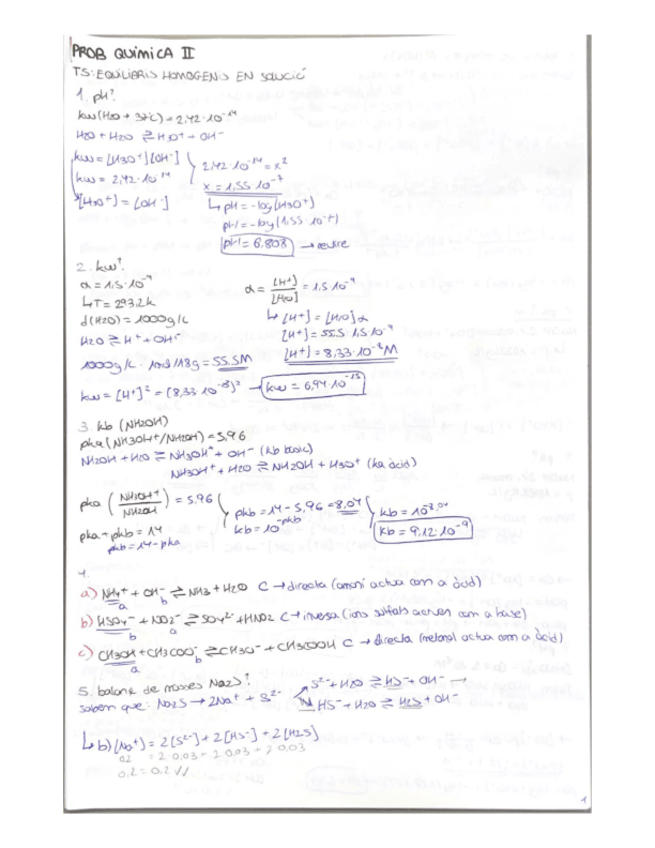 PROB QUÍMICA II
T5: EQUILIBRIS HOMOGENIS EN SOLUCIÓ
1. pH?
kw (H2O + 37ºC) = 2,42·10⁻¹⁴
H2O + H2O ⇌ H3O⁺ + OH⁻
kw = [H3O⁺][OH⁻]
kw = 2,42·10⁻¹⁴
[H3O⁺] = [OH⁻]
2,42·10⁻¹⁴ = x²
x = 1,55·10⁻⁷
↳ pH = -log[H3O⁺]
pH = -log(1,55·10⁻⁷)
pH = 6.808 → neutre
2. kw?
α = 1,5·10⁻⁹
↳ T = 293,2k
d(H2O) = 1000g/L
H2O ⇌ H⁺ + OH⁻
1000g/L · 1mol/18g = 55.5M
α = [H⁺]/[H2O] = 1,5·10⁻⁹
↳ [H⁺] = [H2O] α
[H⁺] = 55.5·1,5·10⁻⁹
[H⁺] = 8,33·10⁻⁸M
kw = [H⁺]² = (8,33·10⁻⁸)² → kw = 6,94·10⁻¹⁵
3. kb (NH2OH)
pka (NH3OH⁺/NH2OH) = 5.96
NH2OH + H2O ⇌ NH3OH⁺ + OH⁻ (kb bàsic)
NH3OH⁺ + H2O ⇌ NH2OH + H3O⁺ (ka àcid)
pka (NH3OH⁺/NH2OH) = 5,96
pka + pkb = 14
pkb = 14 - pka
pkb = 14 - 5,96 = 8,04
kb = 10^-pkb
kb = 10⁻⁸·⁰⁴
kb = 9,12·10⁻⁹
4.
a) NH4⁺ + OH⁻ ⇌ NH3 + H2O C → directa (amoni actua com a àcid)
a b
b) HSO4⁻ + NO2⁻ ⇌ SO4²⁻ + HNO2 C → inversa (ions sulfats actuen com a base)
b a
c) CH3OH + CH3COO⁻ ⇌ CH3O⁻ + CH3COOH C → directa (metanol actua com a àcid)
a b
5. balanç de masses Na2S?
sabem que: Na2S → 2Na⁺ + S²⁻
S²⁻ + H2O ⇌ HS⁻ + OH⁻ →
HS⁻ + H2O ⇌ H2S + OH⁻
↳ b) [Na⁺] = 2[S²⁻] + 2[HS⁻] + 2[H2S]
0.2 = 2·0.03 + 2·0.03 + 2·0.03
0,2 = 0.2 ✓✓
1